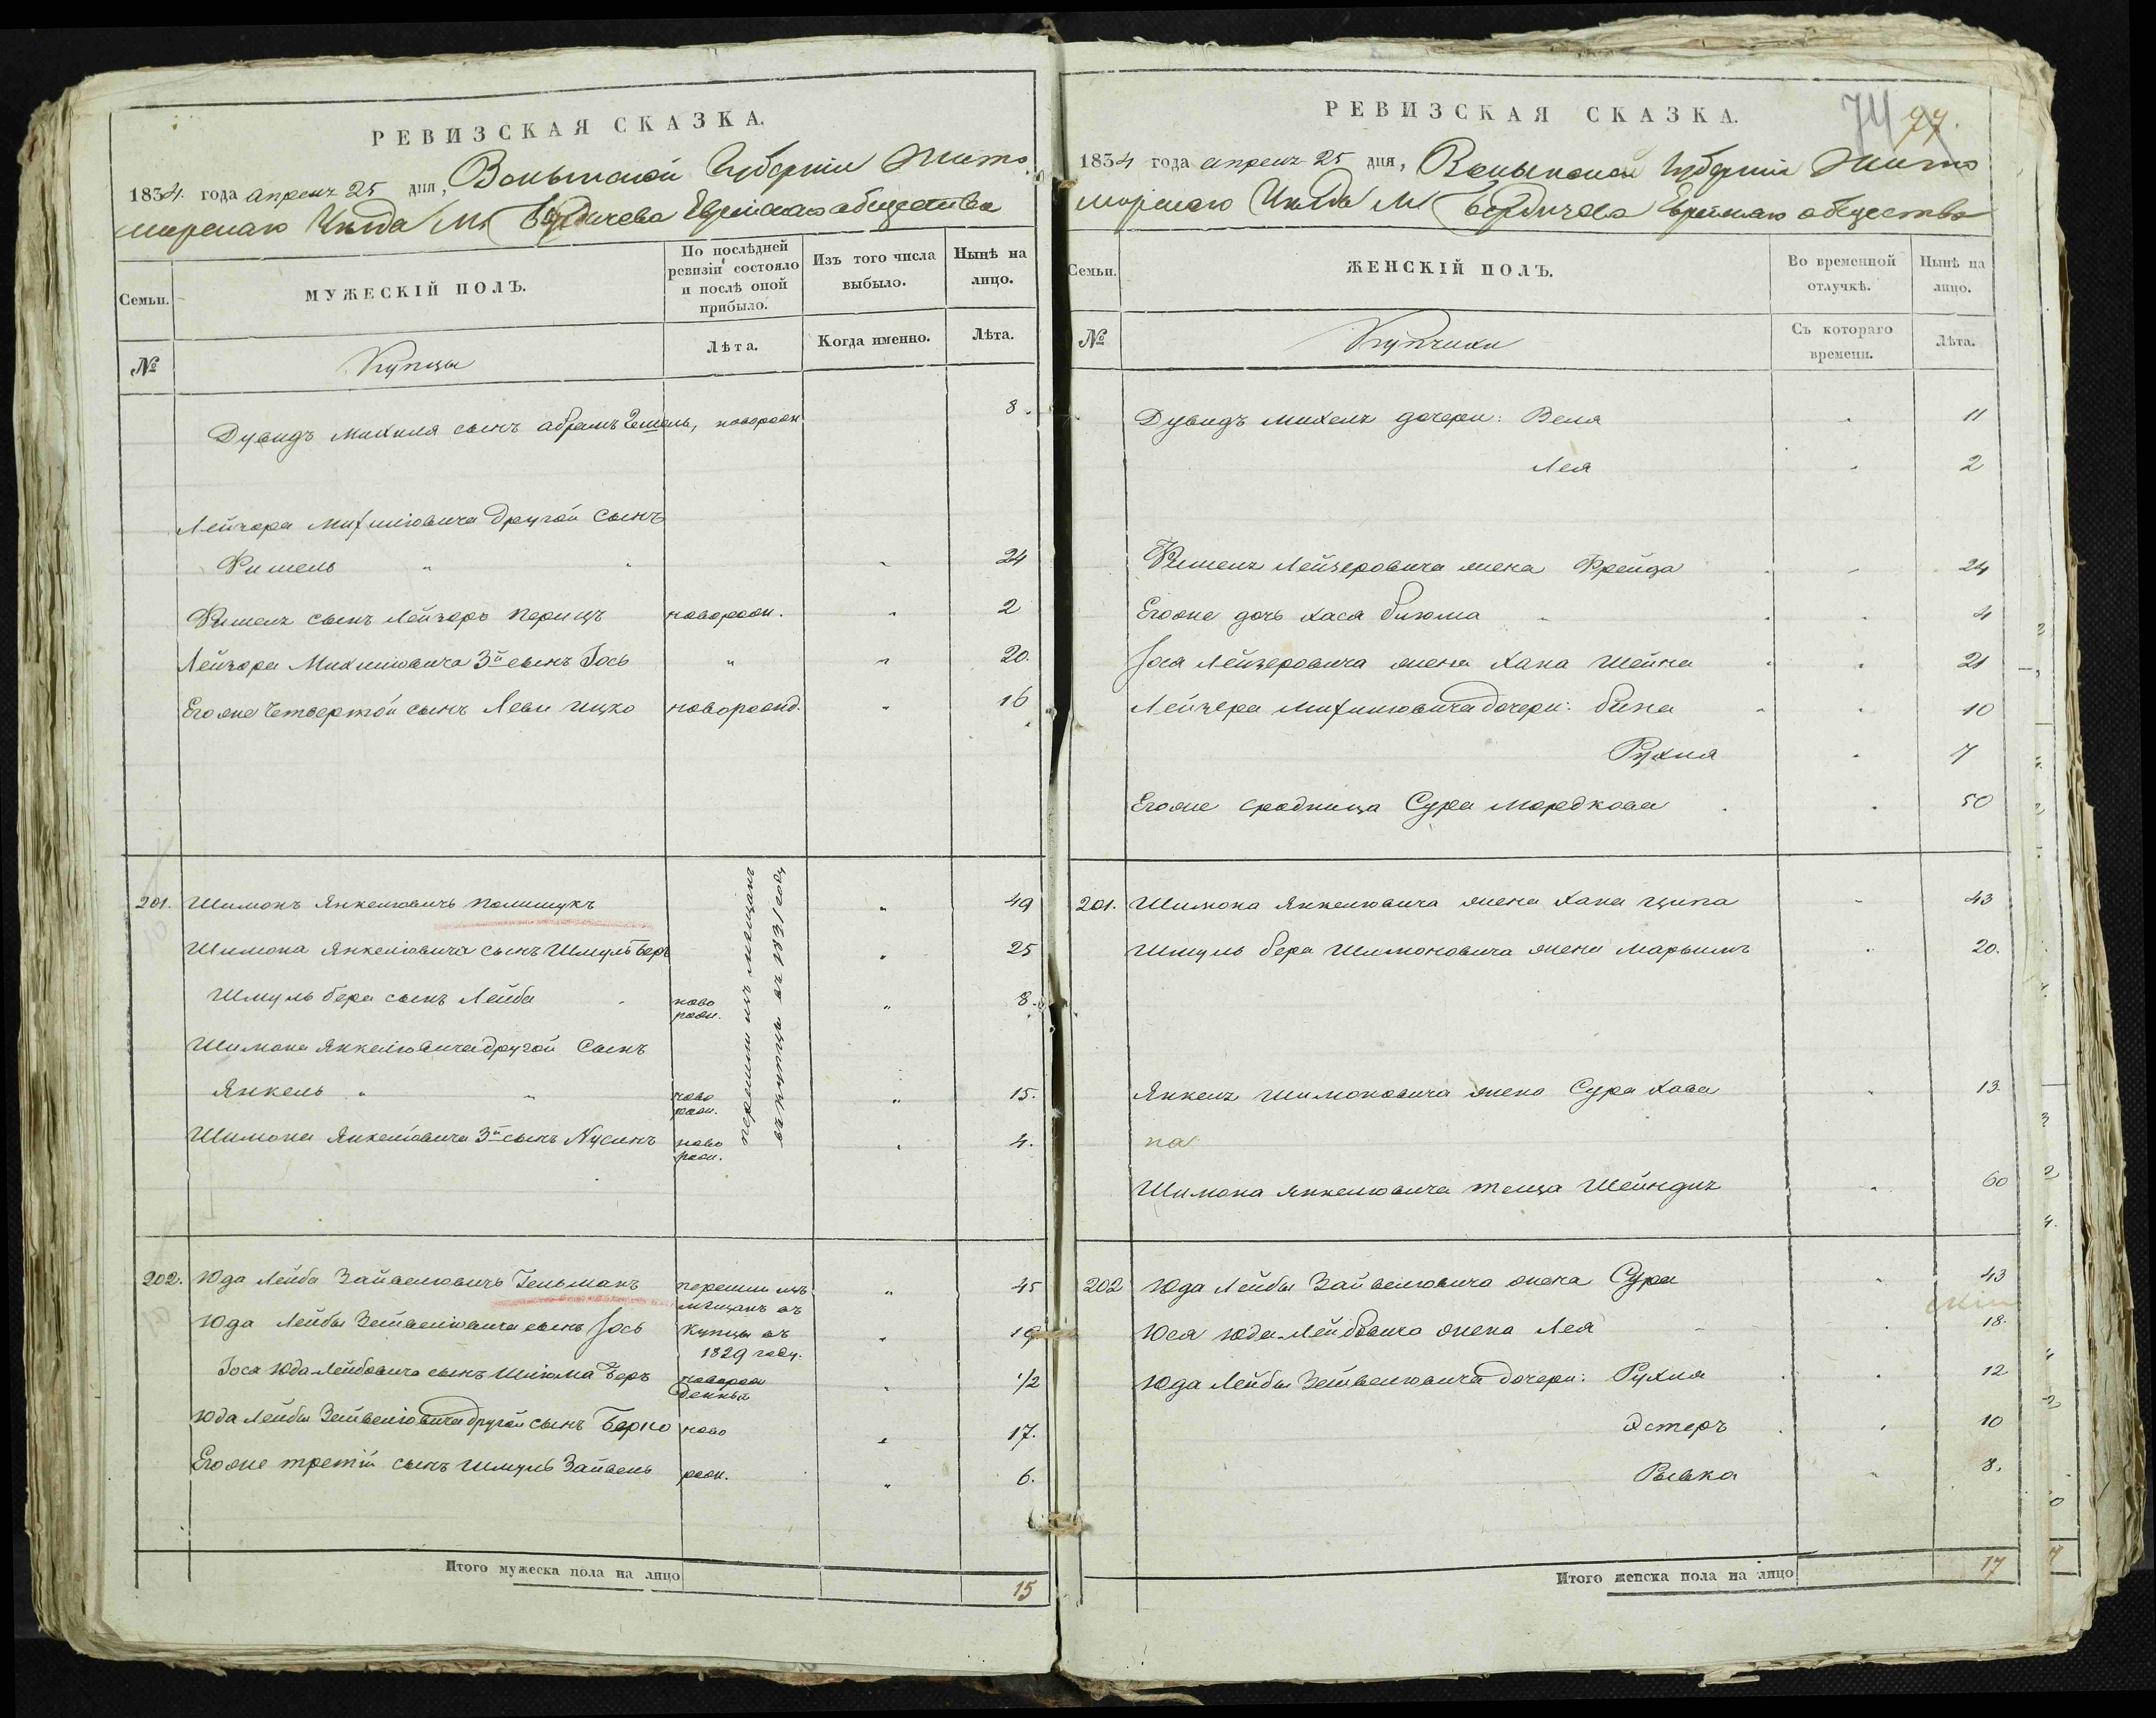 РЕВИЗСКАЯ СКАЗКА.
1834 года апреля 25 дня, Волынской Губернии Жито
мирскаго Уезда М. Бердичева Еврейскаго общества
Семьи.
МУЖЕСКІЙ ПОЛЪ.
По послѣдней ревизіи состояло и послѣ оной прибыло.
Изъ того числа выбыло.
Нынѣ на лицо.
№
Купцы
Лѣта.
Когда именно.
Лѣта.
Дувидъ Михеля сынъ Абрамъ новорож 8.
Лейзора Михелювича другой сынъ
Фишель " " " 24
Фишеля сынъ Лейзоръ Перецъ новорож. " 2
Лейзора Михелювича 3й сынъ Іось " " 20.
Его же Четвертой сынъ Леви Ицко новорожд. " 16
201. Шимонъ Янкелювичъ Полищукъ " 49
перешли изъ мещанъ
въ купцы въ 1831 году
Шимона Янкелювича сынъ Шмуль Беръ " 25
Шмуль Бера сынъ Лейба ново рож. " 8.
Шимона Янкелювича другой Сынъ
Янкель " " ново рож. " 15.
Шимона Янкелювича 3й сынъ Нусинъ ново рож. " 4.
202. Юда Лейба Зайвелювичъ Гельманъ перешли изъ " 45
мещанъ въ
Юда Лейбы Зейвелювича сынъ Іось купцы въ " 19
1829 году.
Іося Юда Лейбовича сынъ Шлюма Беръ новорож денный " 1/2
Юда Лейбы Зейвелювича другой сынъ Берко ново " 17.
Его же третій сынъ Шмуль Зайвель рож. " 6.
Итого мужеска пола на лицо 15
РЕВИЗСКАЯ СКАЗКА.
74 77.
1834 года апреля 25 дня, Волынской Губернии Жито
мирскаго Уезда М. Бердичева Еврейскаго общества
Семьи.
ЖЕНСКІЙ ПОЛЪ.
Во временной отлучкѣ.
Нынѣ на лицо.
№
Купчихи
Съ котораго времени.
Лѣта.
Дувидъ Михеля дочери: Веля " 11
Лея " 2
Фишеля Лейзеровича жена Фрейда " 24
Его же дочь Хася Блюма " " 4
Іося Лейзеровича жена Хана Шейна " 21
Лейзера Михелювича дочери: Бина " 10
Рухля " 7
Его же сродница Сура Мордкова " 50
201. Шимона Янкелювича жена Хана Ципа " 43
Шмуль Бера Шимоновича жена Марьимъ " 20.
Янкеля Шимоновича жена Сура Хава " 13.
на
Шимона Янкелювича теща Шейндля " 60
202 Юда Лейбы Зайвелювича жена Сура " 43
Іося Юда Лейбовича жена Лея " 18.
Юда Лейбы Зейвелювича дочери: Рухля " 12
Эстеръ " 10
Рывка " 8.
Итого женска пола на лицо 17